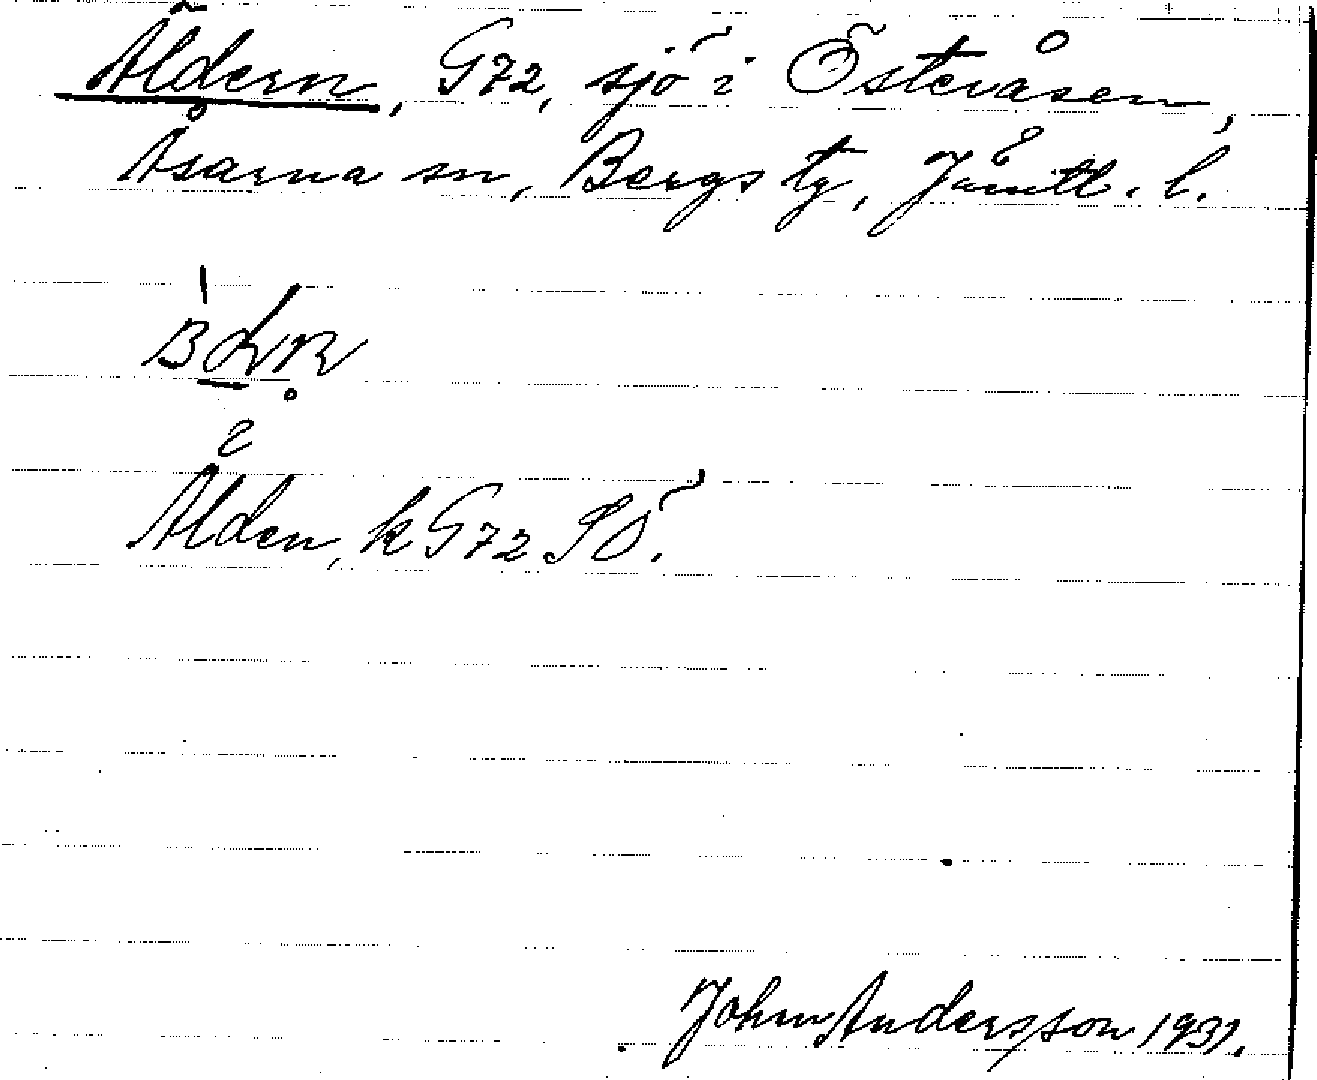 Äldern, G72, sjö i Österåsen,
Åsarna sn, Bergs tg, Jämtl. l.
Ålden, k G72 SÖ.
John Andersson 1931.